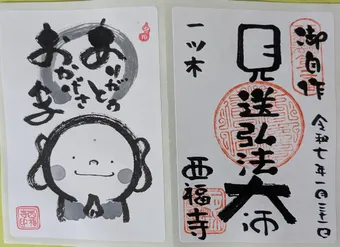 ありがとの
おかげさ
御自作
見送弘法大師
一ツ木
西福寺
令和七年一月三十一日